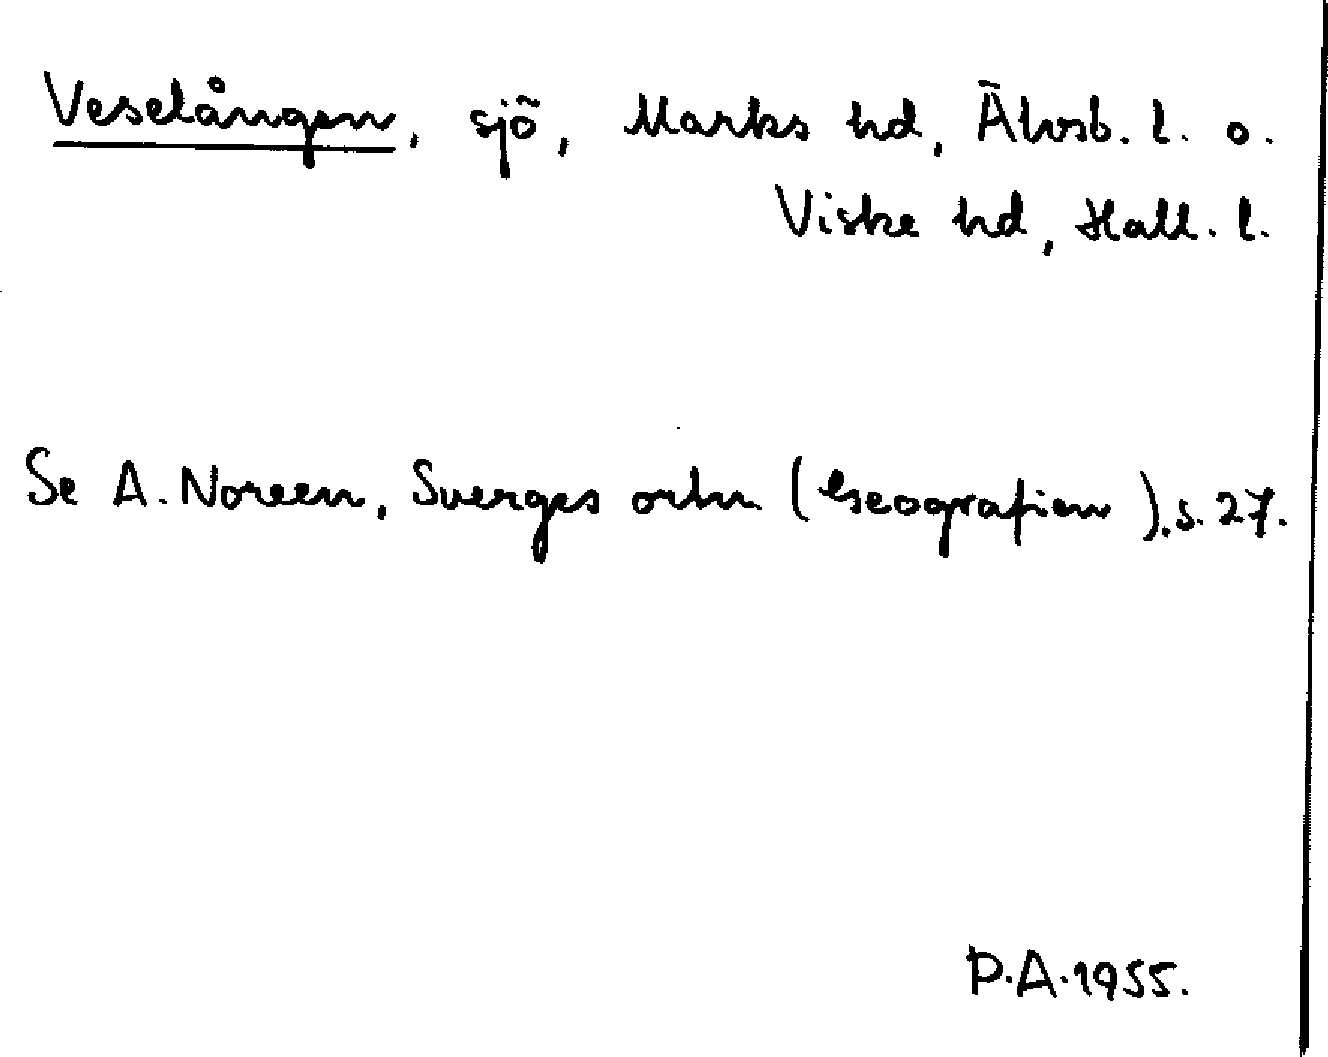 Veselången, sjö, Marks hd, Älvsb. l. o.
Viske hd, Hall. l.
Se A. Noreen, Sverges ortn (Geografien), s. 27.
P.A. 1955.